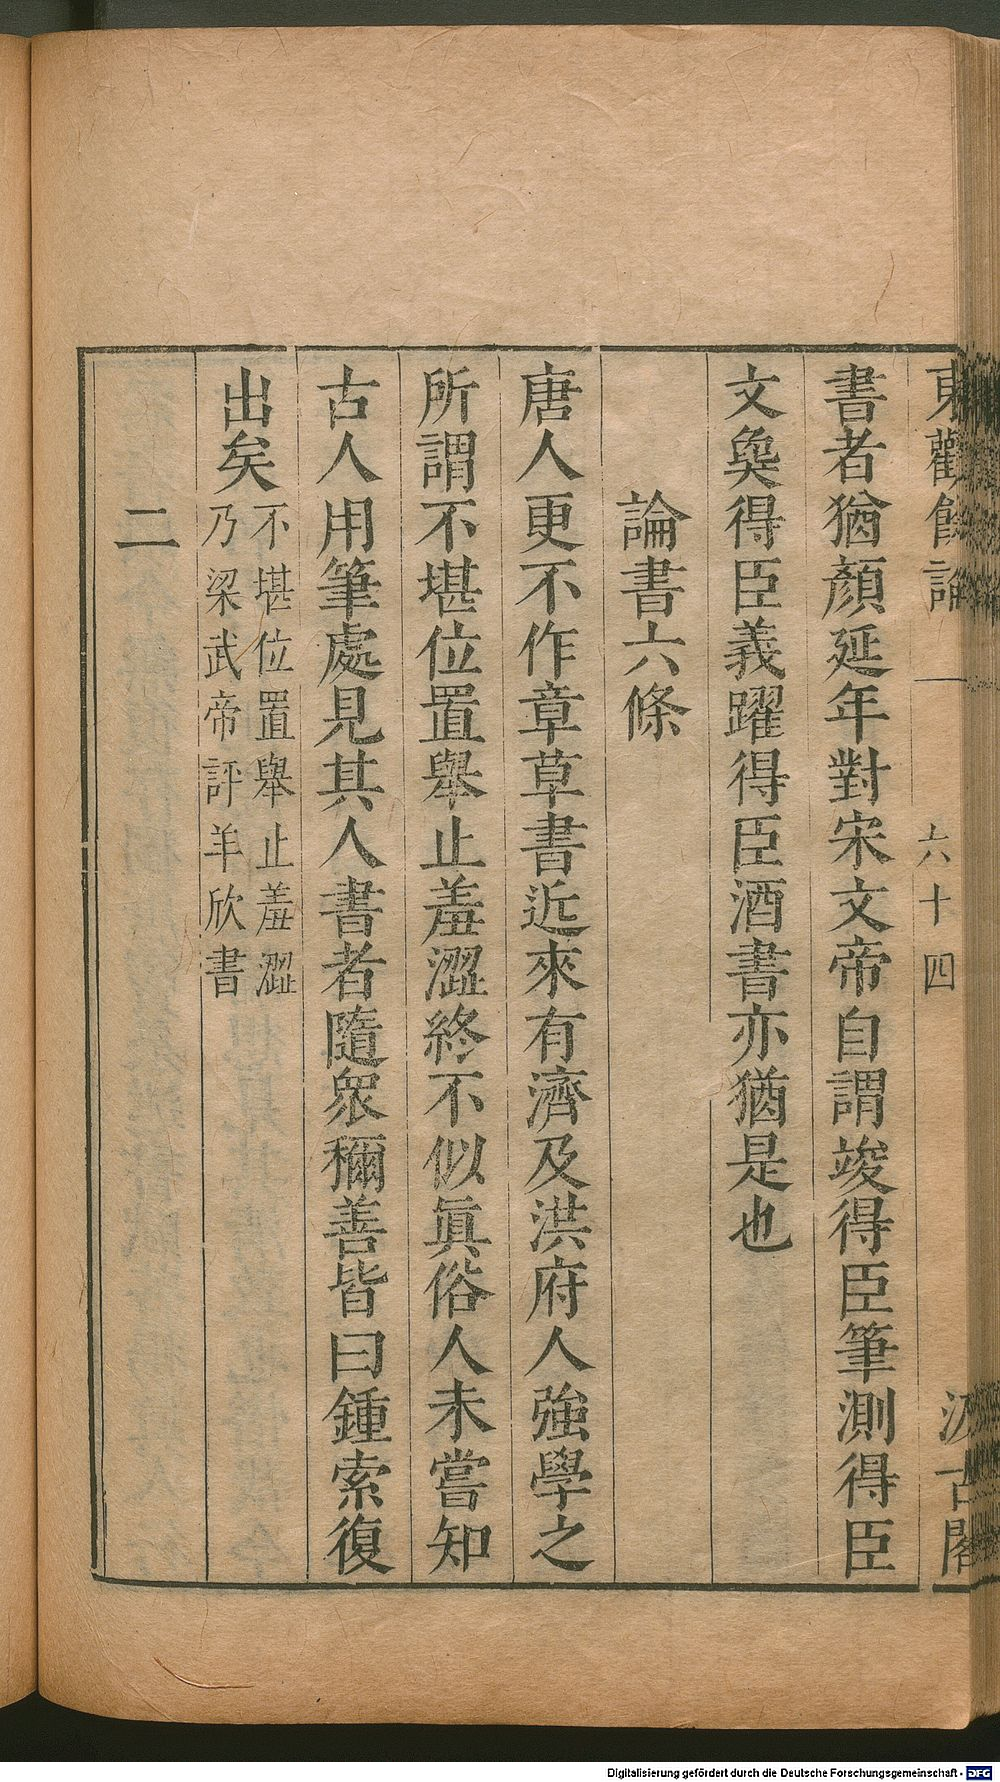 東觀餘論
一
六十四
汲古閣
書者猶顏延年對宋文帝自謂竣得臣筆測得臣
文㚟得臣義躍得臣酒書亦猶是也
論書六條
唐人更不作章草書近來有濟及洪府人強學之
所謂不堪位置舉止羞澀終不似眞俗人未嘗知
古人用筆處見其人書者隨衆稱善皆曰鍾索復
出矣不堪位置舉止羞澀
乃梁武帝評羊欣書
二
Digitalisierung gefördert durch die Deutsche Forschungsgemeinschaft - DFG